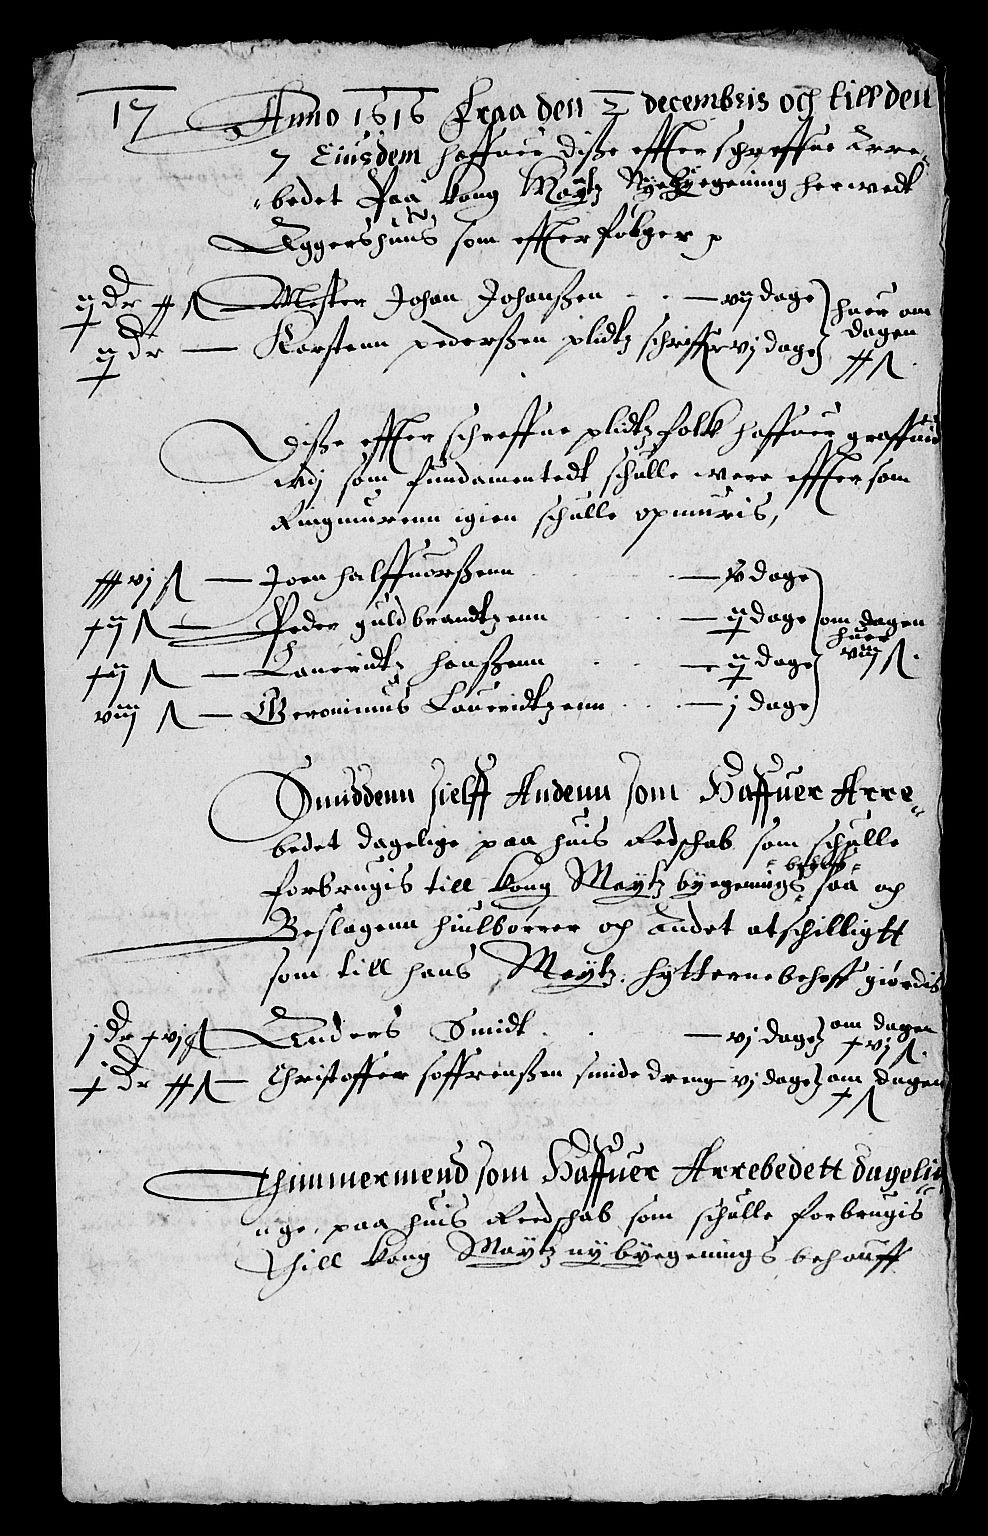 17 Anno 1616 Fraa den 2 decembris och till den
7 Eiusdem haffuer disse effter schreffne Arre-
bedet Paa kong Maytz Nye byegening herwedt
Aggershuus som effterfølger
ij dr xx ß Mester Johan Johanßen — vij dage huer om
ij dr — Karstenn pederßen plidtz schriffuer vj dage dagen
xx ß.
Disse effter schreffne plidtzfolk haffuer graffuit
som fundamentedt schulle were effter som
Ringmurenn igien schulle opmuris,
xxxvj ß — Joen halffuorßenn — dage
xij ß — Peder guldbrandtzenn — dage om dagen
huer
xij ß — Lauridtz hanßenn — dage viij ß.
viij ß — Geronimus Lauridtzenn — j dage
Smiddenn sielff Andenn som Haffuer Arre-
bedet dagelige paa huis Redschab som schulle
behoff
forbrugis till kong Maytz byegenings saa och
Beslagenn hiulbørrer och Andet atschilligtt
som till hans Maytz. hytterne behoff giørdis
j dr xvj ß Anders Smidt — vj dage om dagen
xvj ß.
dr xx ß — Christoffer soffrenßen smide dreng vj dage om dagen
x ß
Thimmermend som Haffuer Arrebedett dageli-
ge, paa huis Reedschab som schulle forbrugis
Thill kong Maytz ny byegenings behouff